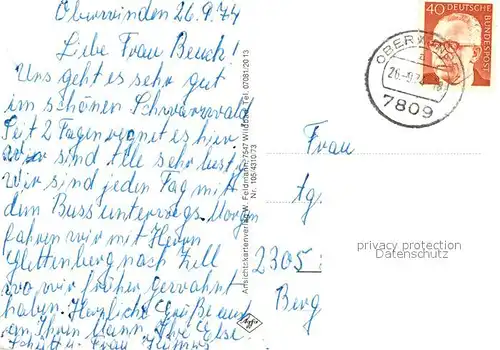 Oberwinden 26.9.74
Liebe Frau Beuck!
Uns geht es sehr gut
im schönen Schwarzwald
Seit 2 Tagen regnet es hier
Wir sind Alle sehr lustig
Wir sind jeden Tag mitt
dem Buss unterwegs. Morgen
fahren wir mit Herrn
Glettenberg nach Zell
wo wir früher gewohnt
haben. Herzliche Grüße auch
an Ihren Mann Ihre Else
Frau
Ansichtskartenverlag W. Feldmann, 7547 Wildbad, Tel. 07081/2013
Nr. 105/4310/73
Agfa
40 DEUTSCHE BUNDESPOST
26.-9.74
7809
Frau
Ag.
2305
Berg
privacy protection
Datenschutz